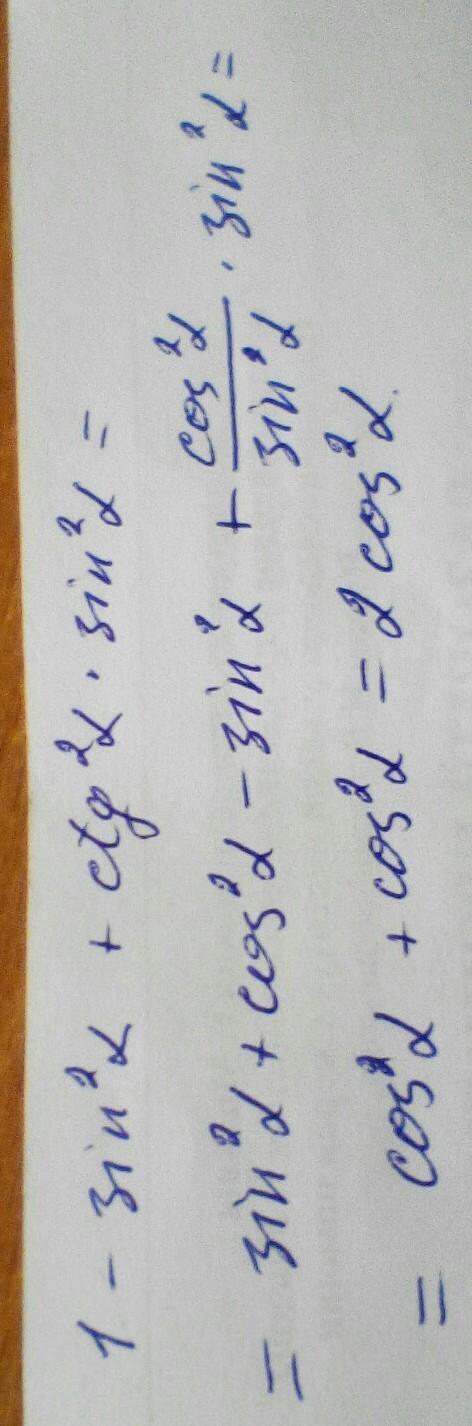 1 - sin²α + ctg²α · sin²α =
= sin²α + cos²α - sin²α + cos²α/sin²α · sin²α =
= cos²α + cos²α = 2 cos²α.